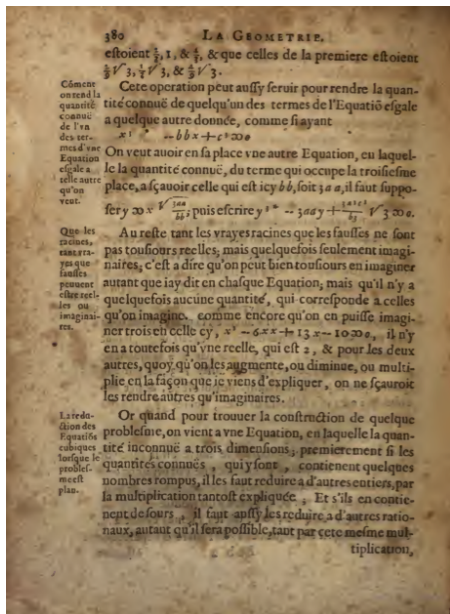 380 LA GEOMETRIE.
estoient 2/3, 1, & 4/3, & que celles de la premiere estoient
Cete operation peut aussy seruir pour rendre la quan-
tité connuë de quelqu'un des termes de l'Equatiō esgale
a quelque autre donnée, comme si ayant
x³ * -- bbx + c³ ∞ 0
On veut auoir en sa place vne autre Equation, en laquel-
le la quantité connuë, du terme qui occupe la troisiesme
place, a sçauoir celle qui est icy bb, soit 3aa, il faut suppo-
ser y ∞ x √3aa/bb; puis escrire y³ * -- 3aay + 3a³c³/b³ √3 ∞ 0.
Au reste tant les vrayes racines que les fausses ne sont
pas tousiours reelles; mais quelquefois seulement imagi-
naires; c'est a dire qu'on peut bien tousiours en imaginer
autant que iay dit en chasque Equation; mais qu'il n'y a
quelquefois aucune quantité, qui corresponde a celles
qu'on imagine. comme encore qu'on en puisse imagi-
ner trois en celle cy, x³ -- 6xx + 13x -- 10 ∞ 0, il n'y
en a toutefois qu'vne reelle, qui est 2, & pour les deux
autres, quoy qu'on les augmente, ou diminue, ou multi-
plie en la façon que ie viens d'expliquer, on ne sçauroit
les rendre autres qu'imaginaires.
Or quand pour trouuer la construction de quelque
problesme, on vient a vne Equation, en laquelle la quan-
tité inconnuë a trois dimensions; premierement si les
quantités connuës, qui y sont, contienent quelques
nombres rompus, il les faut reduire a d'autres entiers, par
la multiplication tantost expliquée; Et s'ils en contie-
nent de sours, il faut aussy les reduire a d'autres ratio-
naux, autant qu'il sera possible, tant par cete mesme mul-
tiplication,
Cōment
on rend la
quantité
connuë
de l'vn
des ter-
mes d'vne
Equation
esgale a
telle autre
qu'on
veut.
Que les
racines,
tant vra-
yes que
fausses
peuuent
estre reel-
les ou
imaginai-
res.
La redu-
ction des
Equatiōs
cubiques
lorsque le
probles-
me est
plan.